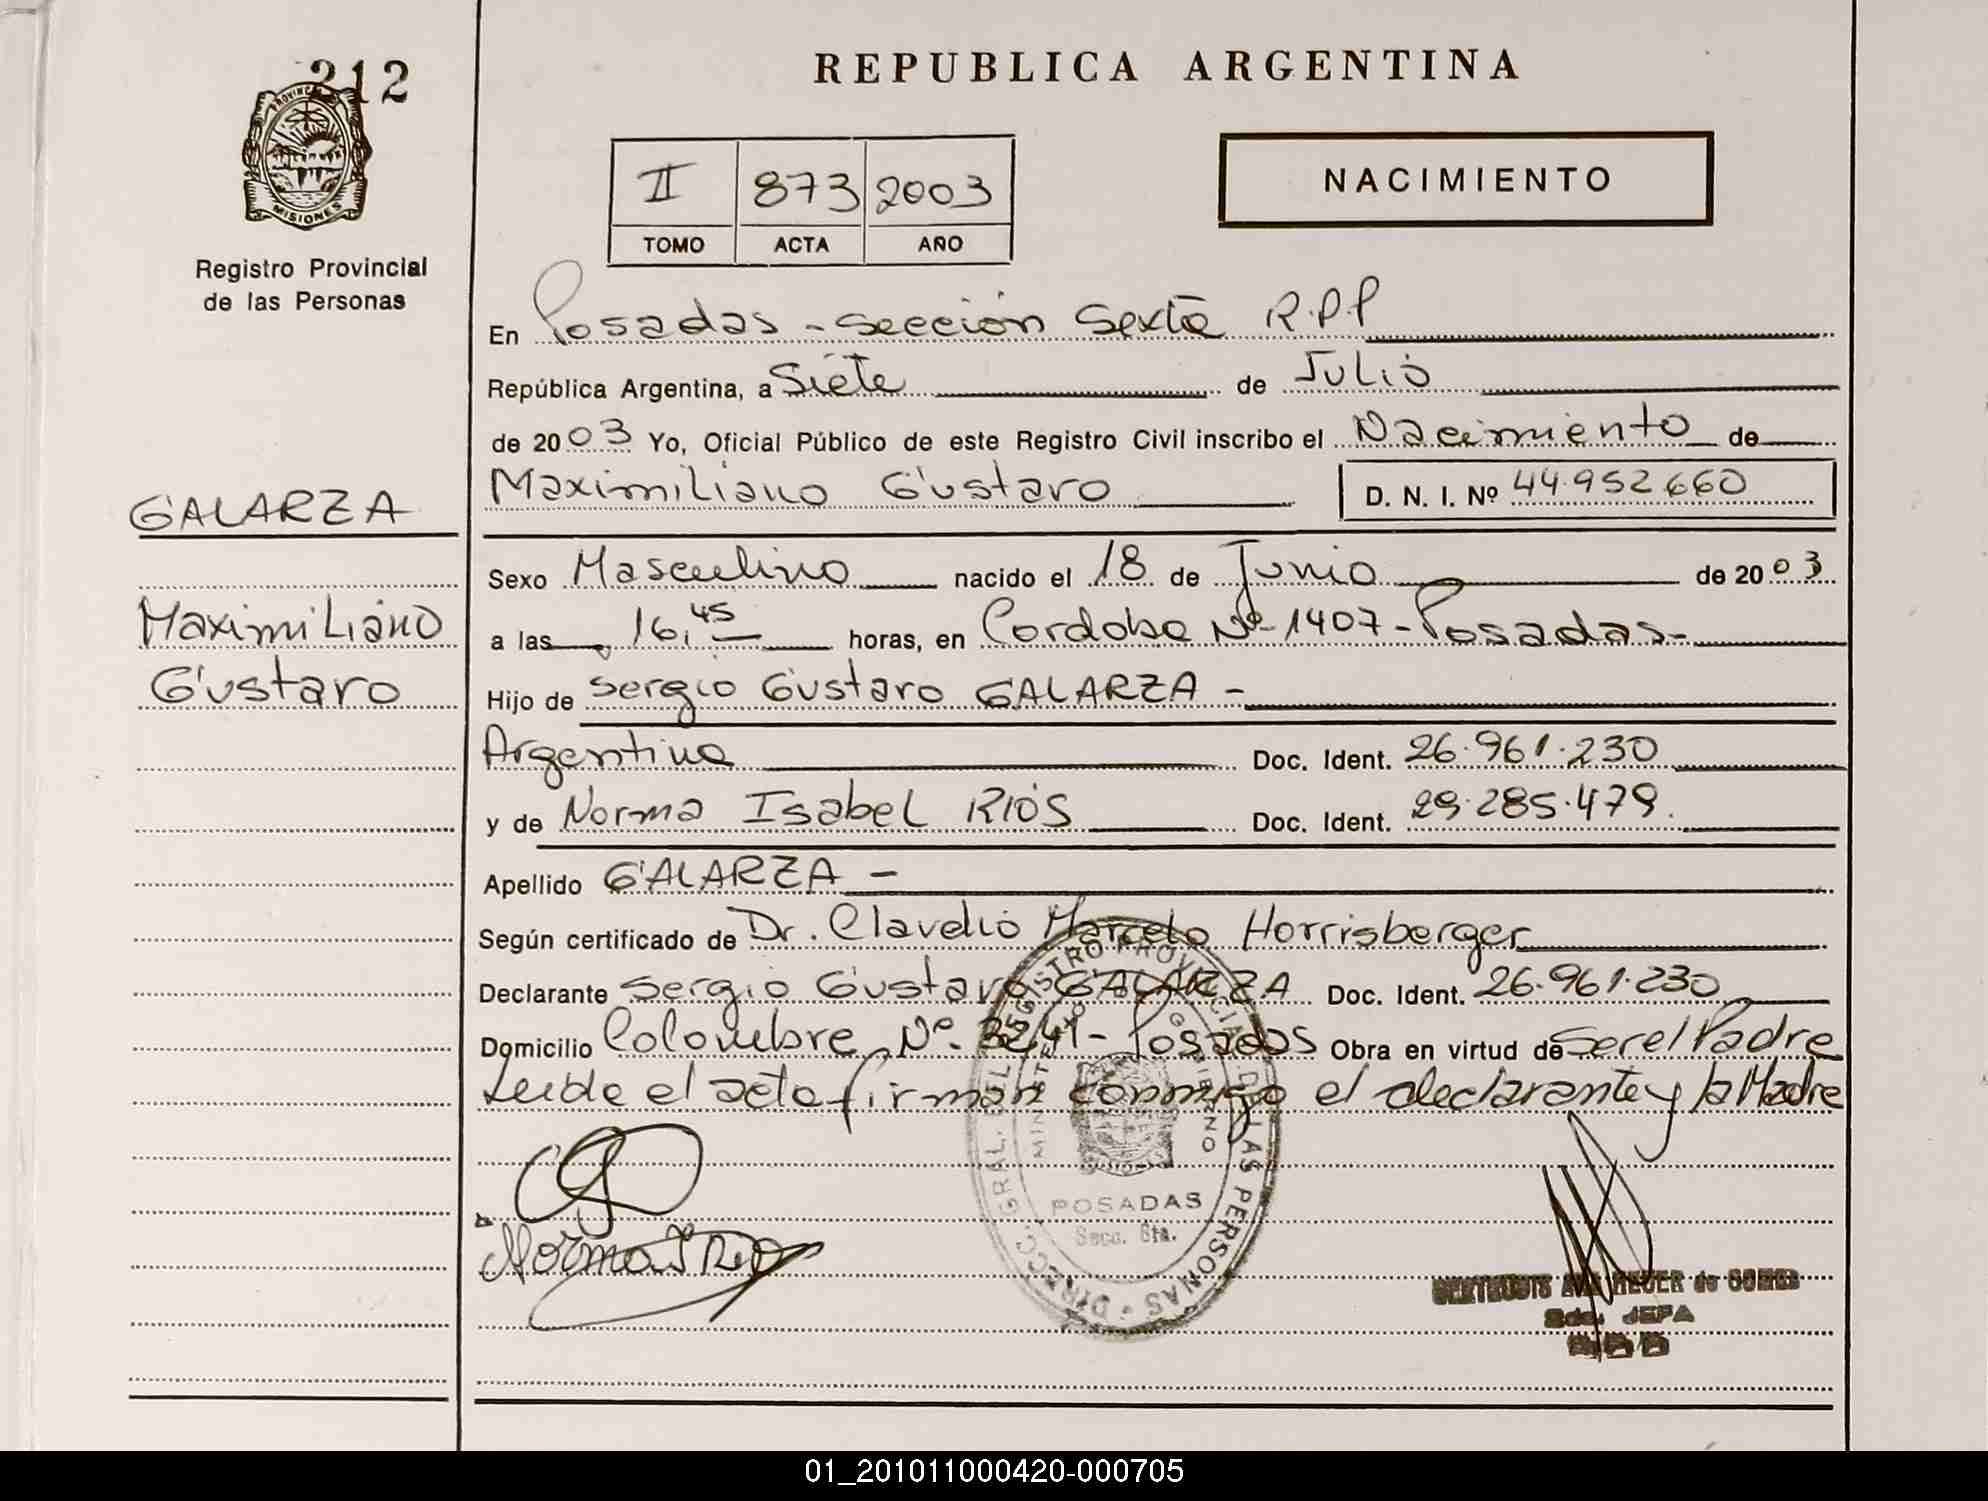 212
REPUBLICA ARGENTINA
PROVINCIA
MISIONES
Registro Provincial
de las Personas
II 873 2003
TOMO ACTA AÑO
NACIMIENTO
En Posadas - Sección Sexta R.P.P
República Argentina, a Siete de Julio
de 2003 Yo, Oficial Público de este Registro Civil inscribo el Nacimiento de
Maximiliano Gustavo D. N. I. Nº 44.952.660
GALARZA
Maximiliano
Gustavo
Sexo Masculino nacido el 18 de Junio de 2003
a las 16,45 horas, en Cordoba Nº 1407 - Posadas -
Hijo de Sergio Gustavo GALARZA -
Argentina Doc. Ident. 26.961.230
y de Norma Isabel RIOS Doc. Ident. 29.285.479.
Apellido GALARZA -
Según certificado de Dr. Claudio Marcelo Horrisberger
Declarante Sergio Gustavo GALARZA Doc. Ident. 26.961.230
Domicilio Colombre Nº. 3241 - Posadas Obra en virtud de Ser el Padre
Leida el acta firman conmigo el declarante y la Madre
DIRECC. GRAL. DEL REGISTRO PROVINCIAL DE LAS PERSONAS
MINISTERIO GOBIERNO
POSADAS
Secc. 6ta.
Norma I Rios
de GOMEZ
JEFA
01_201011000420-000705